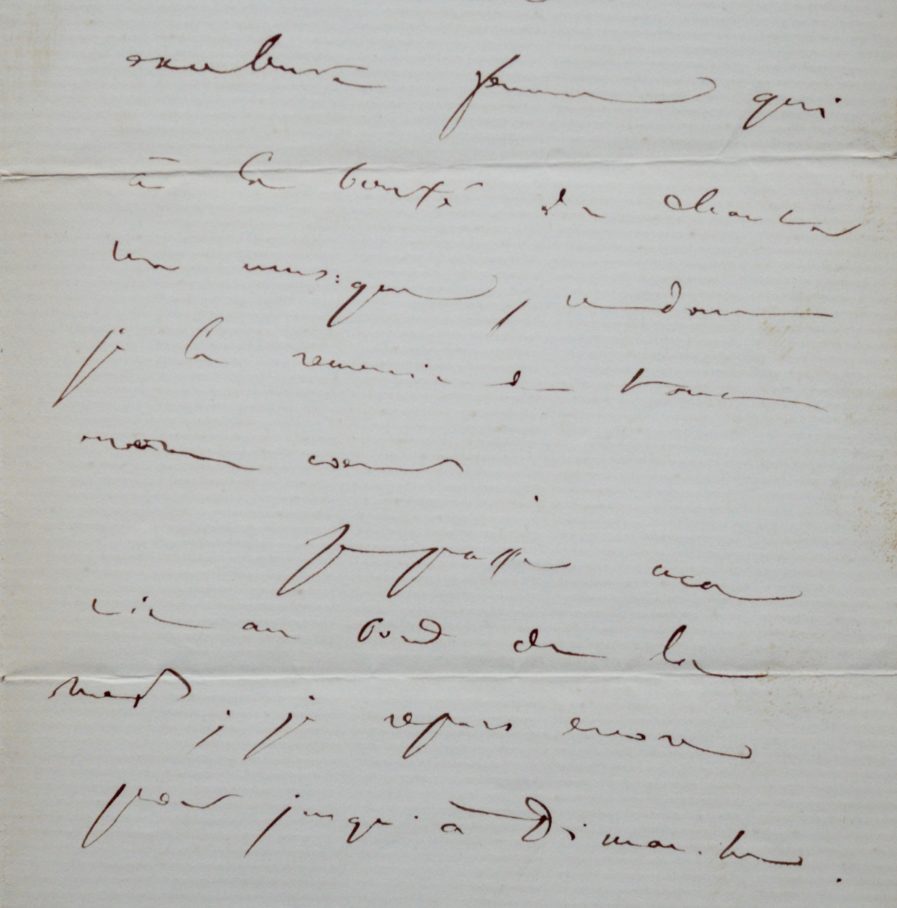 excellente femme qui
à la bonté de chanter
ma musique, 
je la remercie de tout
mon coeur
je passe ma
vie au bord de la
mer, je repars encore
pour jusqu'à Dimanche.